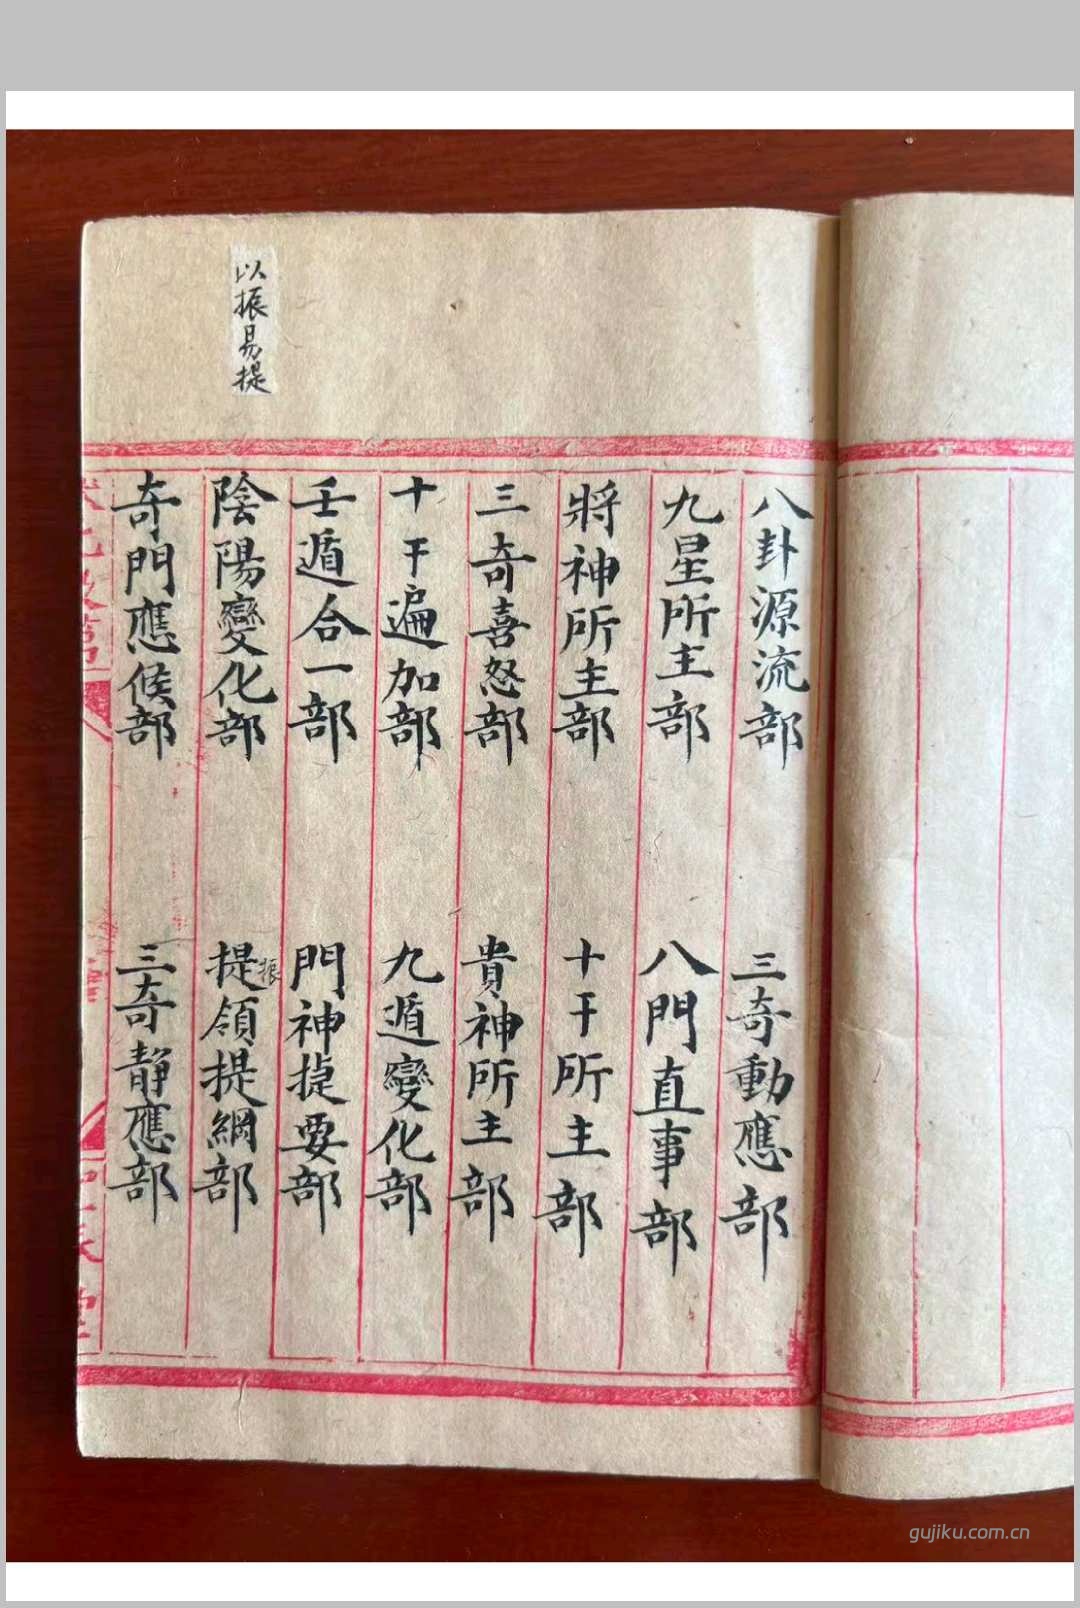 以振易提
八卦源流部 三奇動應部
九星所主部 八門直事部
將神所主部 十干所主部
三奇喜怒部 貴神所主部
十干遍加部 九遁變化部
壬遁合一部 門神捷要部
陰陽變化部 提振領提綱部
奇門應候部 三奇靜應部
gujiku.com.cn